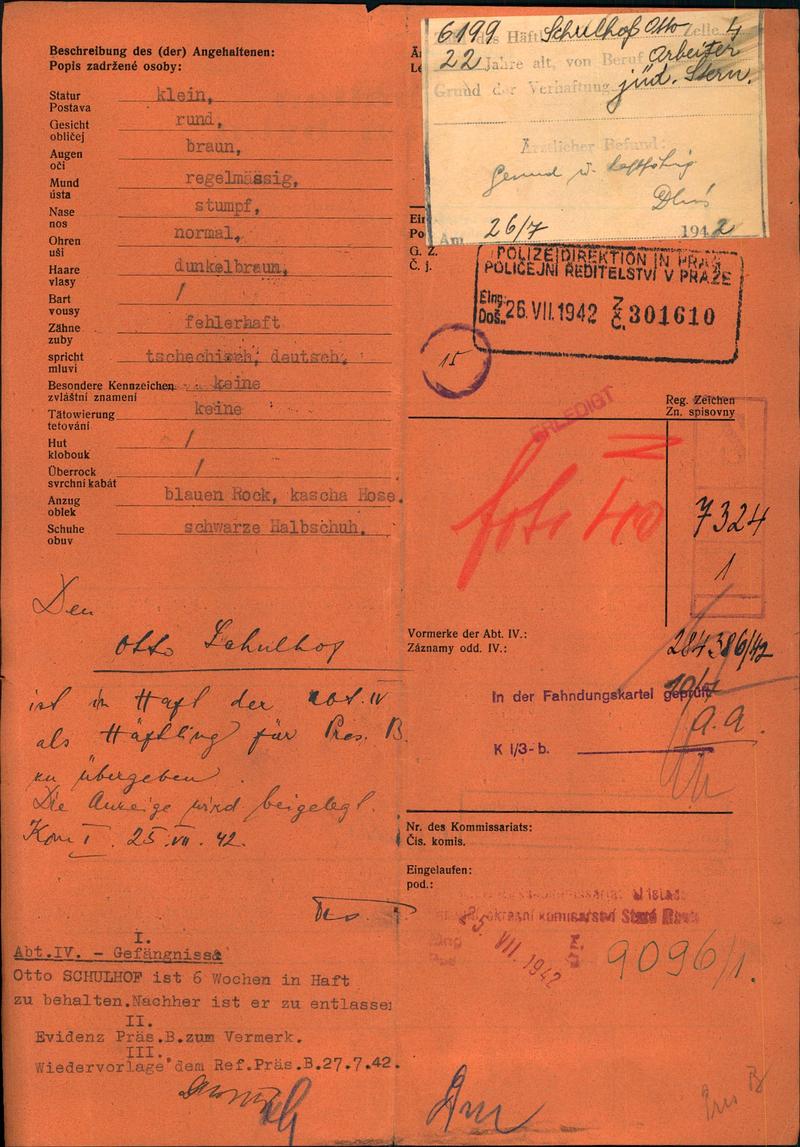 Beschreibung des (der) Angehaltenen:
Popis zadržené osoby:
Statur klein,
Postava
Gesicht rund,
obličej
Augen braun,
oči
Mund regelmässig,
ústa
Nase stumpf,
nos
Ohren normal,
uši
Haare dunkelbraun,
vlasy
Bart /
vousy
Zähne fehlerhaft
zuby
spricht tschechisch, deutsch.
mluví
Besondere Kennzeichen keine
zvláštní znamení
Tätowierung keine
tetování
Hut /
klobouk
Überrock /
svrchní kabát
Anzug blauen Rock, kascha Hose.
oblek
Schuhe schwarze Halbschuh.
obuv
Den
Otto Schulhof
ist in Haft der Abt. IV
als Häftling für Präs. B.
zu übergeben.
Die Anzeige wird beigelegt.
Kom I. 25. VII. 42.
I.
Abt.IV. - Gefängnisse
Otto SCHULHOF ist 6 Wochen in Haft
zu behalten.Nachher ist er zu entlassen
II.
Evidenz Präs.B.zum Vermerk.
III.
Wiedervorlage dem Ref.Präs.B.27.7.42.
6199 des Häftl Schulhof Otto Zelle 4
22 Jahre alt, von Beruf Arbeiter
Grund der Verhaftung jüd. Stern.
Ärztlicher Befund:
Gesund u. haftfähig
Am 26/7 1942
G. Z.
Č. j.
POLIZEIDIREKTION IN PRAG
POLICEJNÍ ŘEDITELSTVÍ V PRAZE
Eing.
Doš. 26. VII. 1942 Z. Č. 301610
15
ERLEDIGT
Reg. Zeichen
Zn. spisovny
foto
7324
1
Vormerke der Abt. IV.:
Záznamy odd. IV.:
284386/42
In der Fahndungskartei geprüft
a.a.
K I/3- b.
Nr. des Kommissariats:
Čís. komis.
Eingelaufen:
pod.:
25. VII. 1942
9096/1.